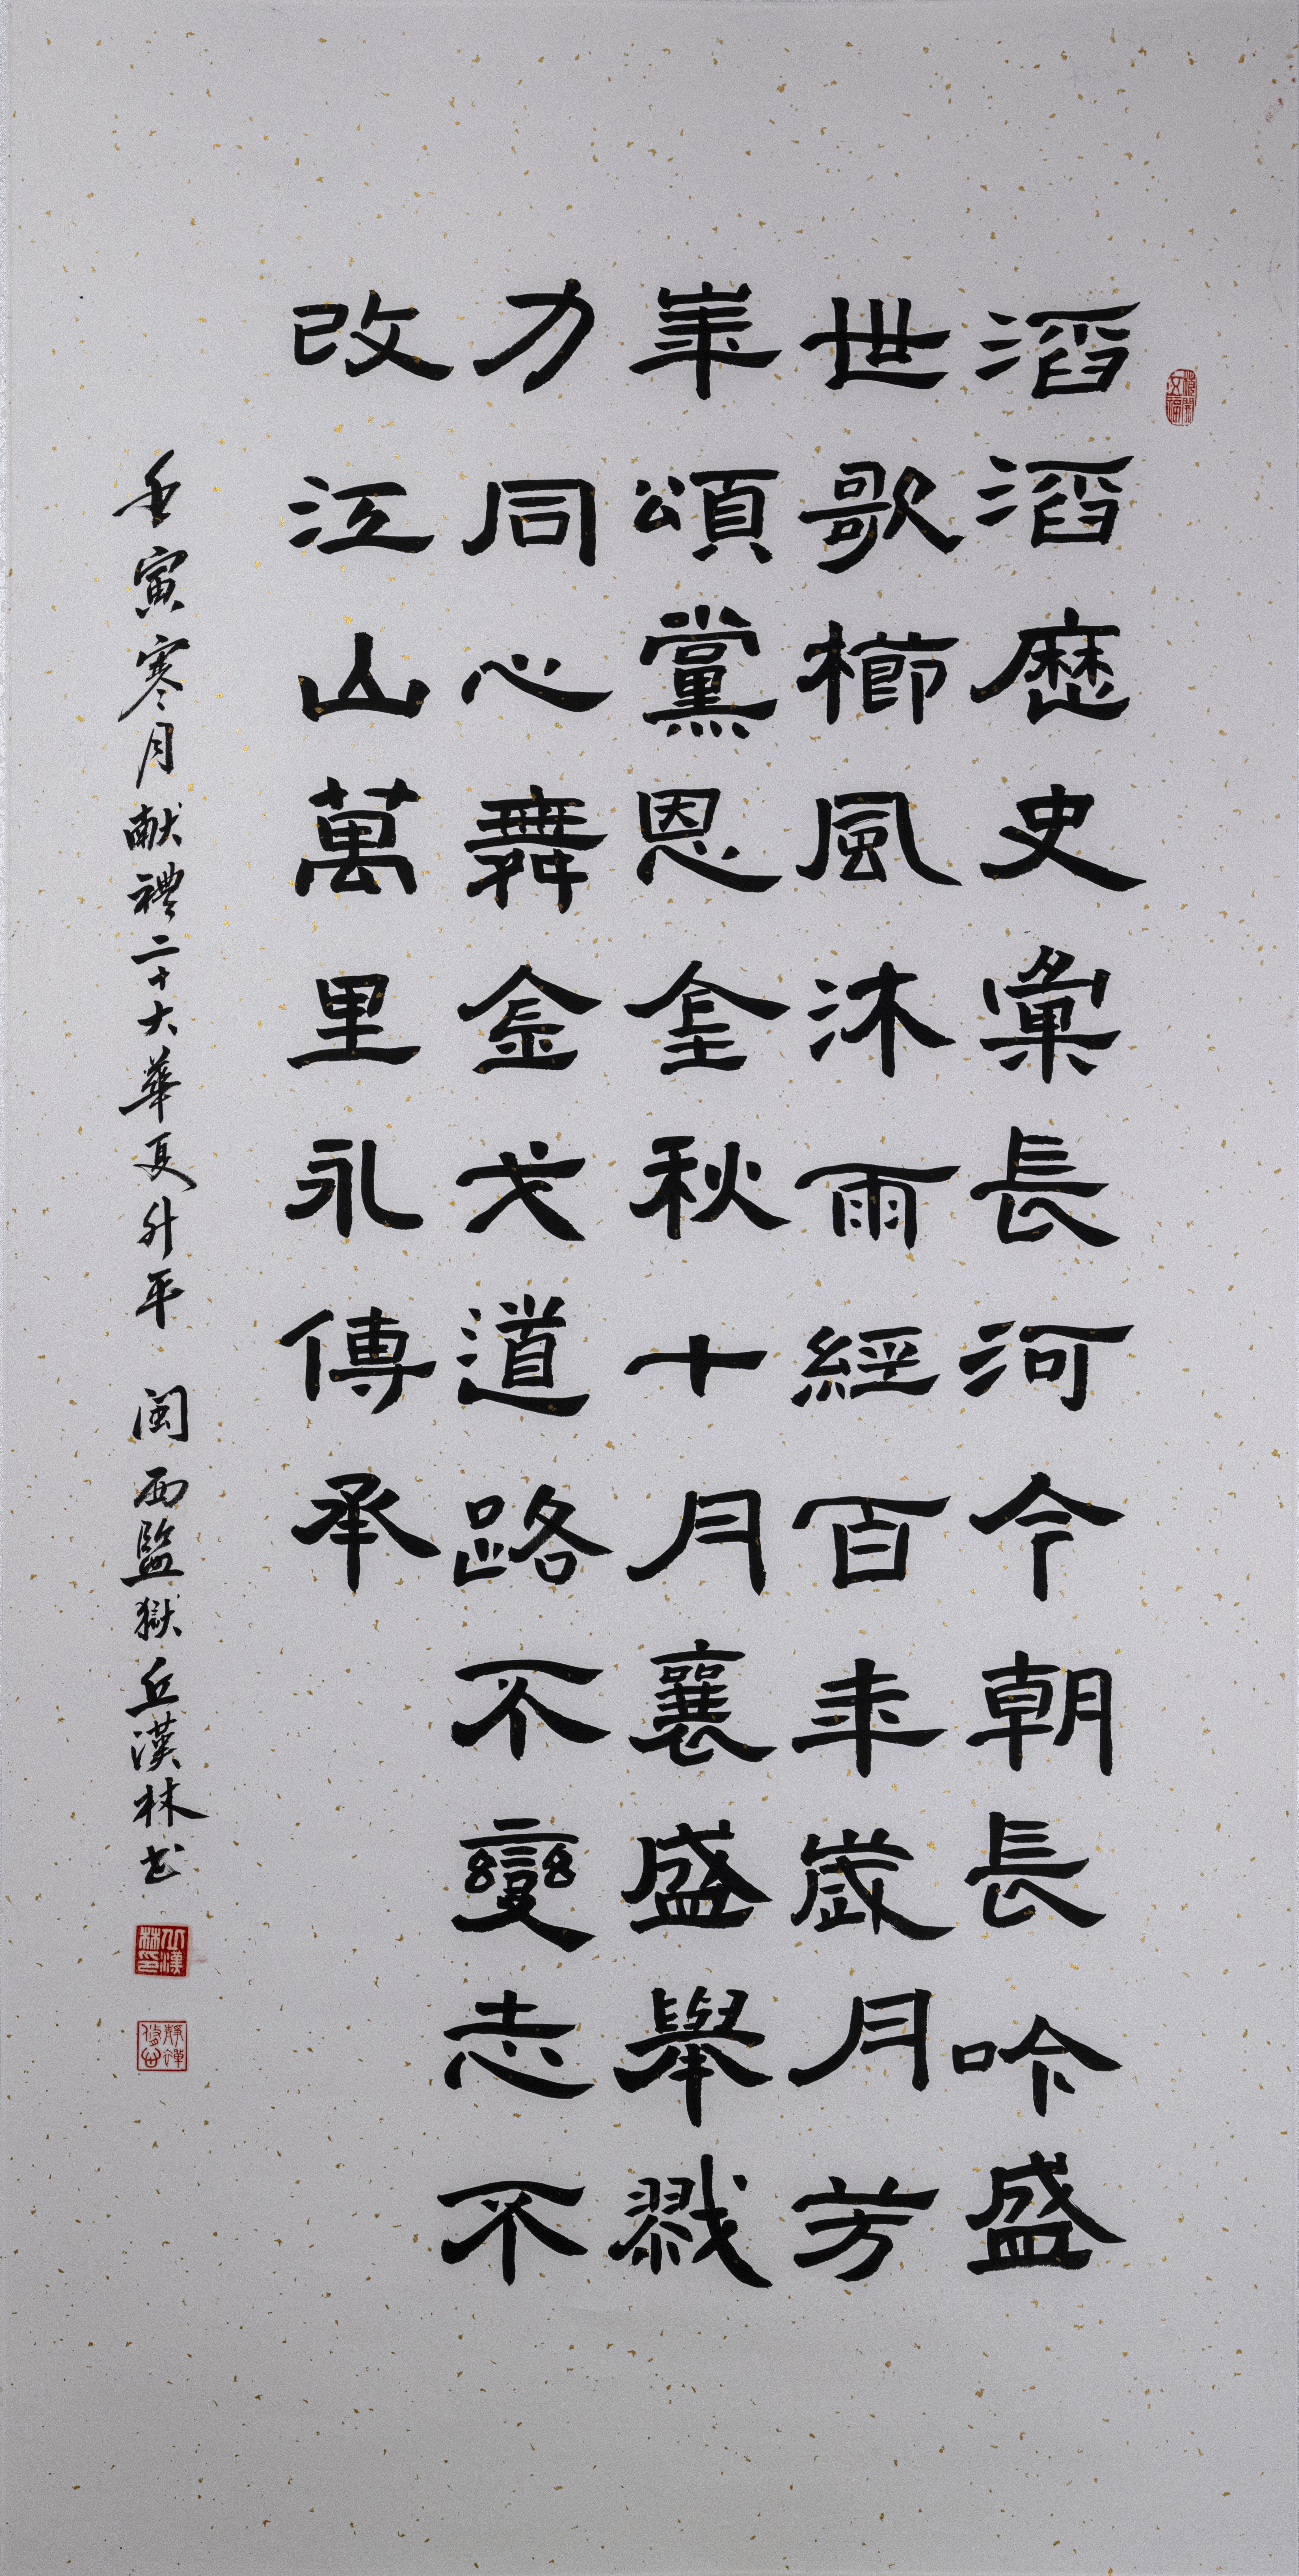 滔滔歷史彙長河今朝長吟盛
世歌櫛風沐雨經百年歲月芳
華頌黨恩金秋十月襄盛舉戮
力同心舞金戈道路不變志不
改江山萬里永傳承
壬寅寒月献禮二十大華夏升平 闽西監獄丘漢林书
丘漢林印